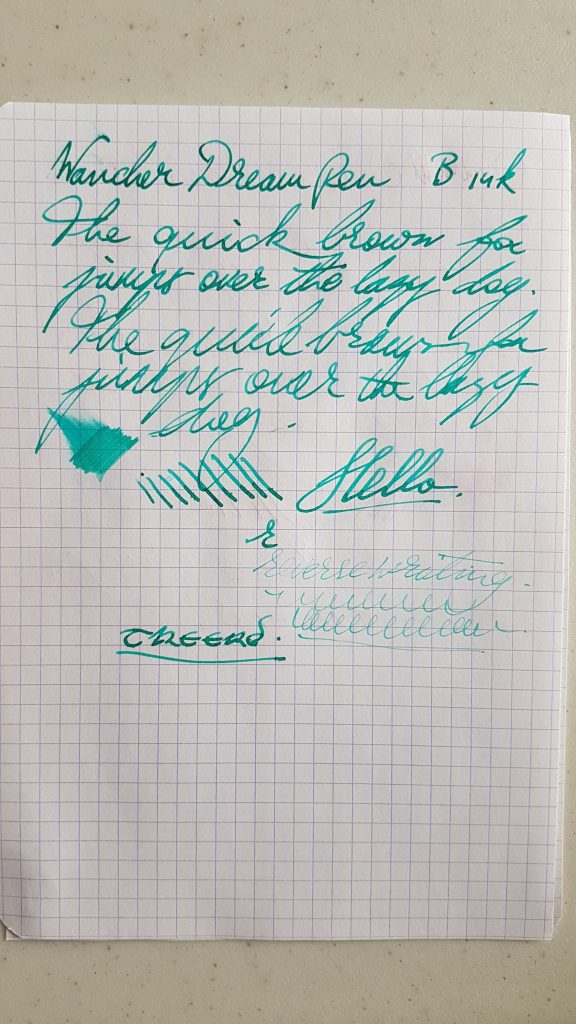 Wancher Dream Pen B 14k
The quick brown fox
jumps over the lazy dog.
The quick brown fox
jumps over the lazy
dog.
Hello.
r
reverse writing.